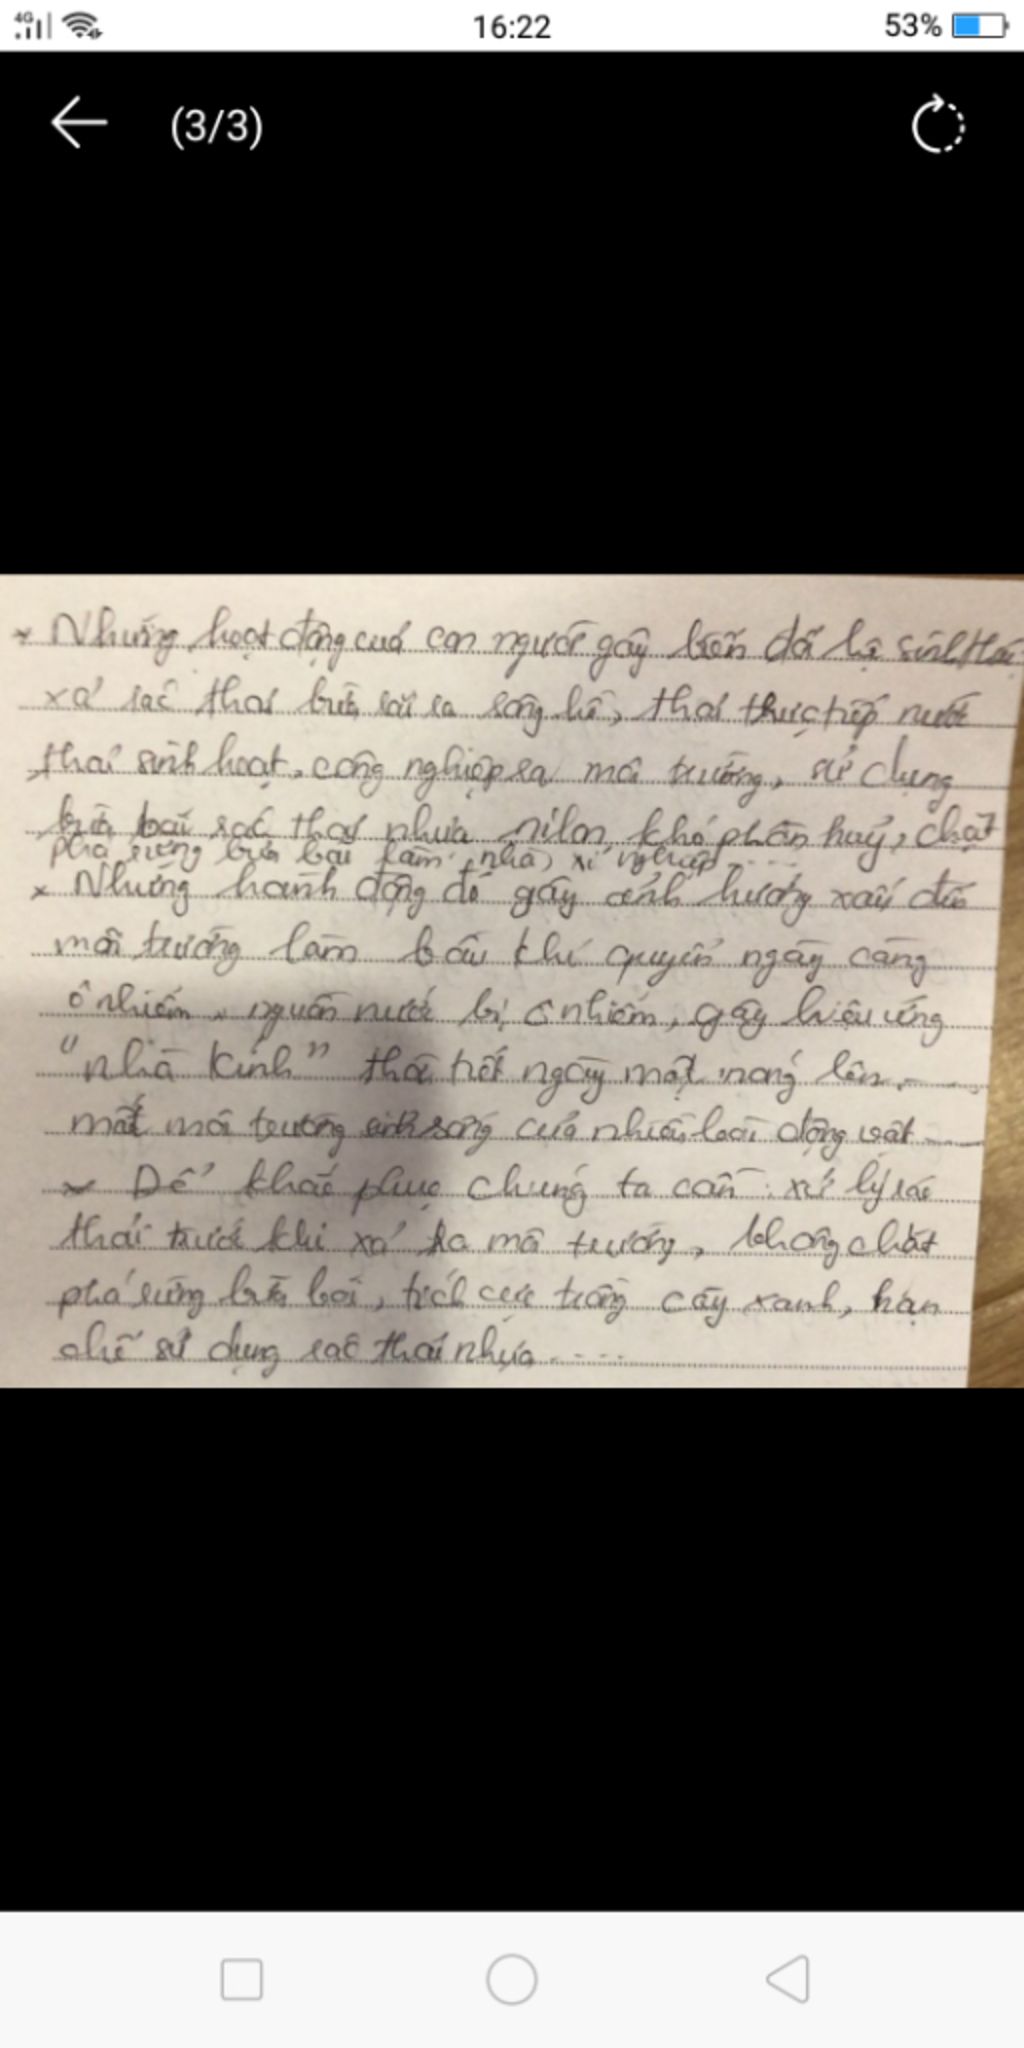 4G
16:22
53%
(3/3)
Những hoạt động của con người gây biến đổi hệ sinh thái
xả rác thải bừa bãi ra sông hồ, thải trực tiếp nước
thải sinh hoạt, công nghiệp ra môi trường, sử dụng
bừa bãi rác thải nhựa nilon khó phân huỷ, chặt
phá rừng bừa bãi làm nhà, xí nghiệp ....
x Những hành động đó gây ảnh hưởng xấu đến
môi trường làm bầu khí quyển ngày càng
ô nhiễm, nguồn nước bị ô nhiễm, gây hiệu ứng
"nhà kính" thời tiết ngày một nóng lên, ...
mất môi trường sinh sống của nhiều loài động vật ....
Để khắc phục chúng ta cần: xử lý rác
thải trước khi xả ra môi trường, không chặt
phá rừng bừa bãi, tích cực trồng cây xanh, hạn
chế sử dụng rác thải nhựa ....